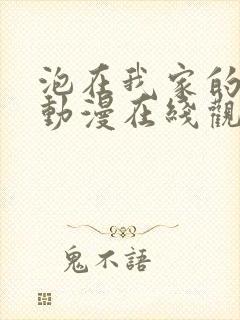 泡在我家的
動漫在綫觀
鬼不語